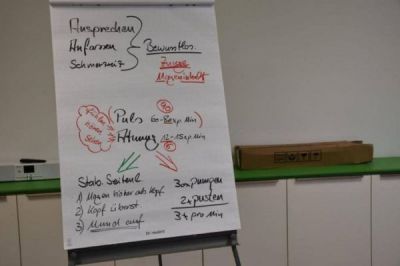 Ansprechen
Anfassen
Schmerzreiz
Bewusstlos.
Zunge
Mageninhalt
90
fühlen
hören
sehen
Puls 60-80 xp. Min
Atmung 12-15 xp Min
6
Stab. Seitenl.
1) Magen höher als Kopf
2) Kopf überst.
3) Mund auf
30x pumpen
2x pusten
3x pro Min